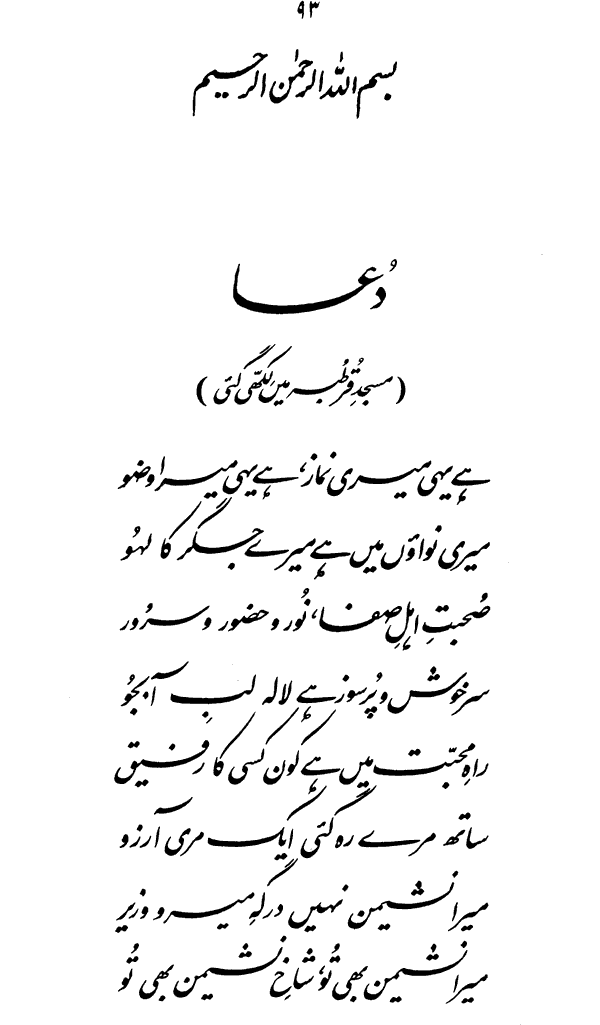 ۹۳
بسم اللہ الرحمٰن الرحیم
دُعا
(مسجدِ قرطبہ میں لکھّی گئی)
ہے یہی میری نماز، ہے یہی میرا وضو
میری نواؤں میں ہے میرے جگر کا لہُو
صُحبتِ اہلِ صفا، نُور و حضور و سرُور
سرخوش و پُرسوز ہے لالہ لبِ آبجُو
راہِ محبّت میں ہے کون کسی کا رفیق
ساتھ مرے رہ گئی ایک مری آرزو
میرا نشیمن نہیں درگہِ میر و وزیر
میرا نشیمن بھی تُو، شاخِ نشیمن بھی تُو